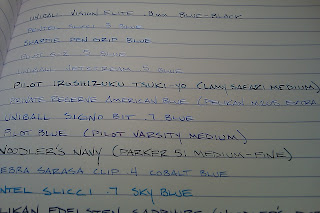 UNIBALL VISION ELITE .8mm BLUE-BLACK
PENTEL SLICCI .7 BLUE
SHARPIE PEN GRIP BLUE
BLUE
PILOT IROSHIZUKU TSUKI-YO (LAMY SAFARI MEDIUM)
PRIVATE RESERVE AMERICAN BLUE (PELIKAN M200
UNIBALL SIGNO BIT .7 BLUE
PILOT BLUE (PILOT VARSITY MEDIUM)
NOODLER'S NAVY (PARKER 51 MEDIUM-FINE)
ZEBRA SARASA CLIP .4 COBALT BLUE
PENTEL SLICCI .7 SKY BLUE
PELIKAN EDELSTEIN SAPPHIRE